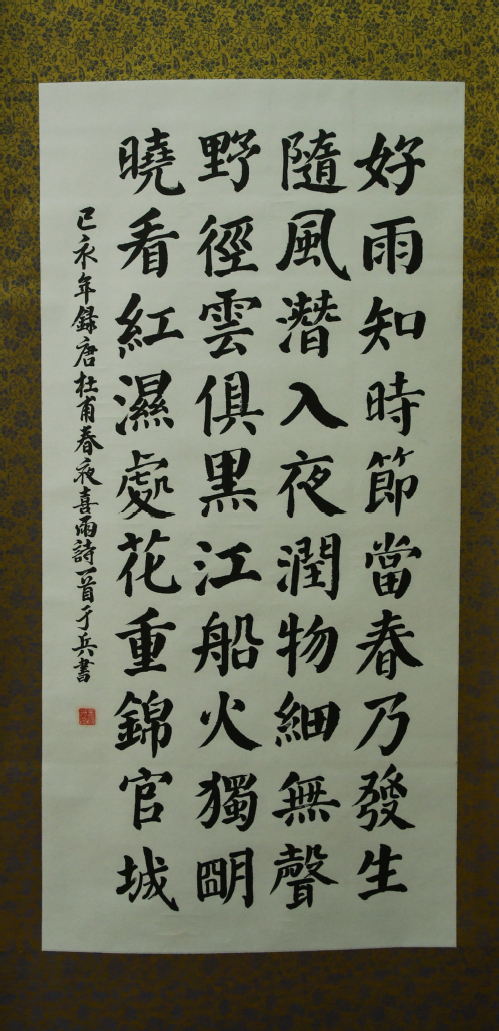 好雨知時節當春乃發生
隨風潛入夜潤物細無聲
野徑雲俱黑江船火獨明
曉看紅濕處花重錦官城
己亥年録唐杜甫春夜喜雨詩一首于兵書